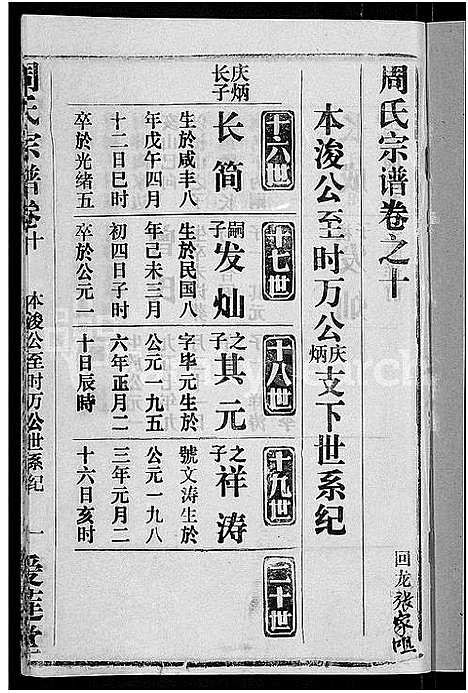 周氏宗谱卷之十
回龙张家咀
本浚公至时万公庆炳支下世系纪
十六世
十七世
十八世
十九世
二十世
庆炳长子
长简
生於咸丰八
年戊午四月
十二日巳时
卒於光绪五
嗣子
发灿
生於民国八
年己未三月
初四日子时
卒於公元一
之子
其元
字毕元生於
公元一九五
六年正月二
十日辰時
之子
祥涛
號文涛生於
公元一九八
三年元月二
十六日亥时
周氏宗谱卷十
本浚公至时万公世系纪
一
爱莲堂